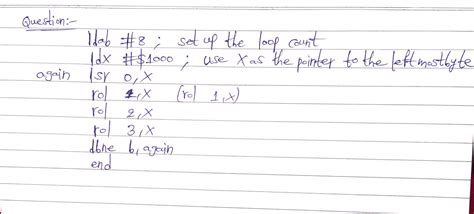 Question:-
ldab #8 ; set up the loop count
ldx #$1000 ; use X as the pointer to the leftmost byte
again lsr 0,X
rol 1,X (rol 1,X)
rol 2,X
rol 3,X
dbne b, again
end